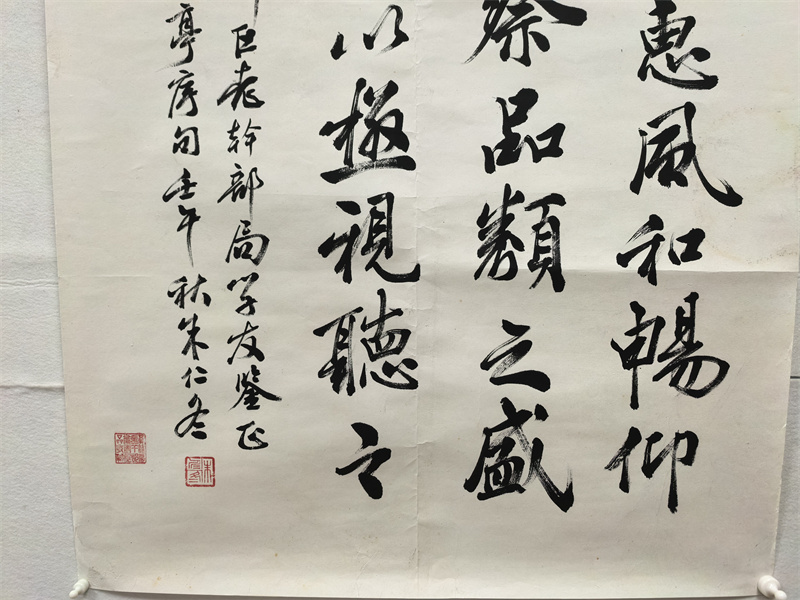 惠风和暢仰
察品類之盛
以極視聽之
老幹部局学友鑒正
亭序句壬午秋朱仁冬